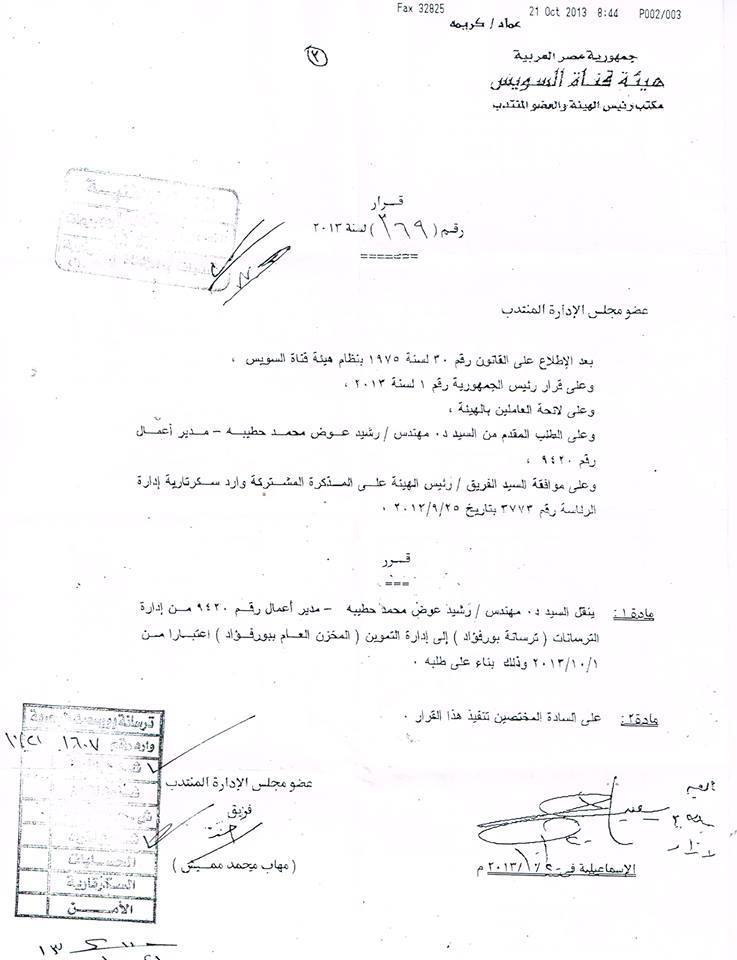 Fax 32825 21 Oct 2013 8:44 P002/003
عماد / كريمه
(٢)
جمهورية مصر العربية
هيئة قناة السويس
مكتب رئيس الهيئة والعضو المنتدب
قرار
رقم ( ٣٦٩ ) لسنة ٢٠١٣
=======
عضو مجلس الإدارة المنتدب
بعد الإطلاع على القانون رقم ٣٠ لسنة ١٩٧٥ بنظام هيئة قناة السويس ،
وعلى قرار رئيس الجمهورية رقم ١ لسنة ٢٠١٣ ،
وعلى لائحة العاملين بالهيئة ،
وعلى الطلب المقدم من السيد د٠ مهندس / رشيد عوض محمد حطيبه – مدير أعمال
رقم ٩٤٢٠ ،
وعلى موافقة السيد الفريق / رئيس الهيئة على المذكرة المشتركة وارد سكرتارية إدارة
الرئاسة رقم ٣٧٧٣ بتاريخ ٢٠١٢/٩/٢٥ ٠
قرر
===
مادة١: ينقل السيد د٠ مهندس / رشيد عوض محمد حطيبه – مدير أعمال رقم ٩٤٢٠ من إدارة
الترسانات ( ترسانة بورفؤاد ) إلى إدارة التموين ( المخزن العام ببورفؤاد ) اعتبارا من
٢٠١٣/١٠/١ وذلك بناء على طلبه ٠
مادة٢: على السادة المختصين تنفيذ هذا القرار ٠
ترسانة
وارد رقم ١٦٠٧
عضو مجلس الإدارة المنتدب
فريق
( مهاب محمد مميش )
الإسماعيلية في ٢٠١٣/ م
الحسابات
السكرتارية
الأمن